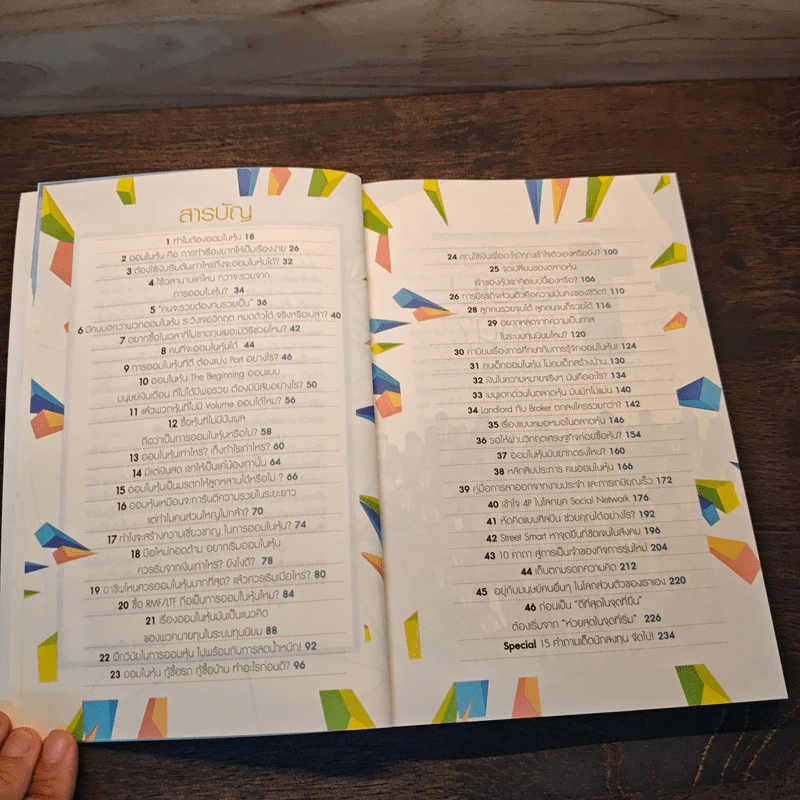 สารบัญ
1 ทำไมต้องออมในหุ้น 18
2 ออมในหุ้น คือ การทำเรื่องยากให้เป็นเรื่องง่าย 26
3 ต้องใช้เงินเริ่มต้นเท่าไหร่ถึงจะออมในหุ้นได้? 32
4 ใช้เวลานานแค่ไหน กว่าจะรวยจาก
การออมในหุ้น? 34
5 "คนจะรวยต้องทนรวยเป็น" 36
6 มีคนบอกว่าพวกออมในหุ้น ระวังเจอวิกฤต หมดตัวได้ จริงหรือเปล่า? 40
7 อยากซื้อในเวลาที่ไม่ขาดทุนเยอะมีวิธีช่วยไหม? 42
8 คนที่จะออมในหุ้นได้ 44
9 การออมในหุ้นที่ดี ต้องแบ่ง Port อย่างไร? 46
10 ออมในหุ้น The Beginning ออมแบบ
มนุษย์เงินเดือน ที่ไม่ได้มีพ่อรวย ต้องมีนิสัยอย่างไร? 50
11 แล้วพวกหุ้นที่ไม่มี Volume ออมได้ไหม? 56
12 ซื้อหุ้นที่ไม่มีปันผล
ถือว่าเป็นการออมในหุ้นหรือไม่? 58
13 ออมในหุ้นเท่าไหร? เก็งกำไรเท่าไหร่? 60
14 มีแต่เงินสด เขาให้เป็นแค่น้องเท่านั้น 64
15 ออมในหุ้นเป็นมรดกให้ลูกหลานได้หรือไม่ ? 66
16 ออมในหุ้นเหมือนจะการันตีความรวยในระยะยาว
แต่ทำไมคนส่วนใหญ่ไม่กล้า? 70
17 ทำไงจะสร้างความเชี่ยวชาญ ในการออมในหุ้น? 74
18 มือใหม่ถอดด้าม อยากเริ่มออมในหุ้น
ควรเริ่มจากเงินเท่าไหร่? ยังไงดี? 78
19 อาชีพไหนควรออมในหุ้นมากที่สุด? แล้วควรเริ่มเมื่อไหร่? 80
20 ซื้อ RMF/LTF ถือเป็นการออมในหุ้นไหม? 84
21 เรื่องออมในหุ้นมันเป็นแนวคิด
ของพวกนายทุนในระบบทุนนิยม 88
22 ฝึกวินัยในการออมหุ้น ไปพร้อมกับการลดน้ำหนัก! 92
23 ออมในหุ้น กู้ซื้อรถ กู้ซื้อบ้าน ทำอะไรก่อนดี? 96
24 คุณใช้เงินเพื่ออะไร?คุณเข้าใจตัวเองหรือยัง? 100
25 จุดเปลี่ยนของตลาดหุ้น
เจ้าของหุ้นเขาคิดแบบนี้เองหรือ? 106
26 การมีธุรกิจส่วนตัวคือความมั่นคงของชีวิต? 110
28 ลูกคนรวยจนได้ ลูกคนจนก็รวยได้ 116
29 อยากหลุดจากความเป็นทาส
ในระบบทุนนิยมไหม? 120
30 ค่านิยมเรื่องการศึกษากับการรู้จักออมในหุ้น! 124
31 คนเด็กออมในหุ้น ไม่คนเด็กสร้างบ้าน 130
32 เงินในความหมายจริงๆ มันคืออะไร? 134
33 เมนูแดกด่วนในตลาดหุ้น มันมักไม่แน่น 140
34 Landlord กับ Broker ตกลงใครรวยกว่า? 142
35 เรื่องแบบหมอหมอในตลาดหุ้น 146
36 รอให้ผ่านวิกฤตเศรษฐกิจค่อยซื้อหุ้น? 154
37 ออมในหุ้นมันยากตรงไหน? 160
38 หลักสิบประการ คนออมในหุ้น 166
39 คู่มือการลาออกจากงานประจำ และการเกษียณเร็ว 172
40 เข้าใจ 4P ในโลกยุค Social Network 176
41 หัดคิดแบบศิลปิน ช่วยคุณได้อย่างไร? 192
42 Street Smart หาจุดยืนที่ชัดเจนในสังคม 196
43 10 คาถา สู่การเป็นเจ้าของกิจการรุ่นใหม่ 204
44 เก็บตกมรดกความคิด 212
45 อยู่กับมนุษย์คนอื่นๆ ในโลกส่วนตัวของเราเอง 220
46 ก่อนเป็น "ดีที่สุดในจุดที่ยืน"
ต้องเริ่มจาก "ห่วยสุดในจุดที่เริ่ม" 226
Special 15 คำถามเด็ดนักลงทุน จัดไป! 234